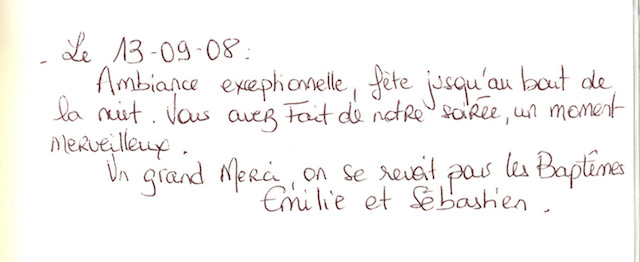 - Le 13-09-08:
Ambiance exceptionnelle, fête jusqu'au bout de
la nuit. Vous avez Fait de notre soirée, un moment
merveilleux.
Un grand Merci, on se revoit pour les Baptêmes
Emilie et Sébastien.